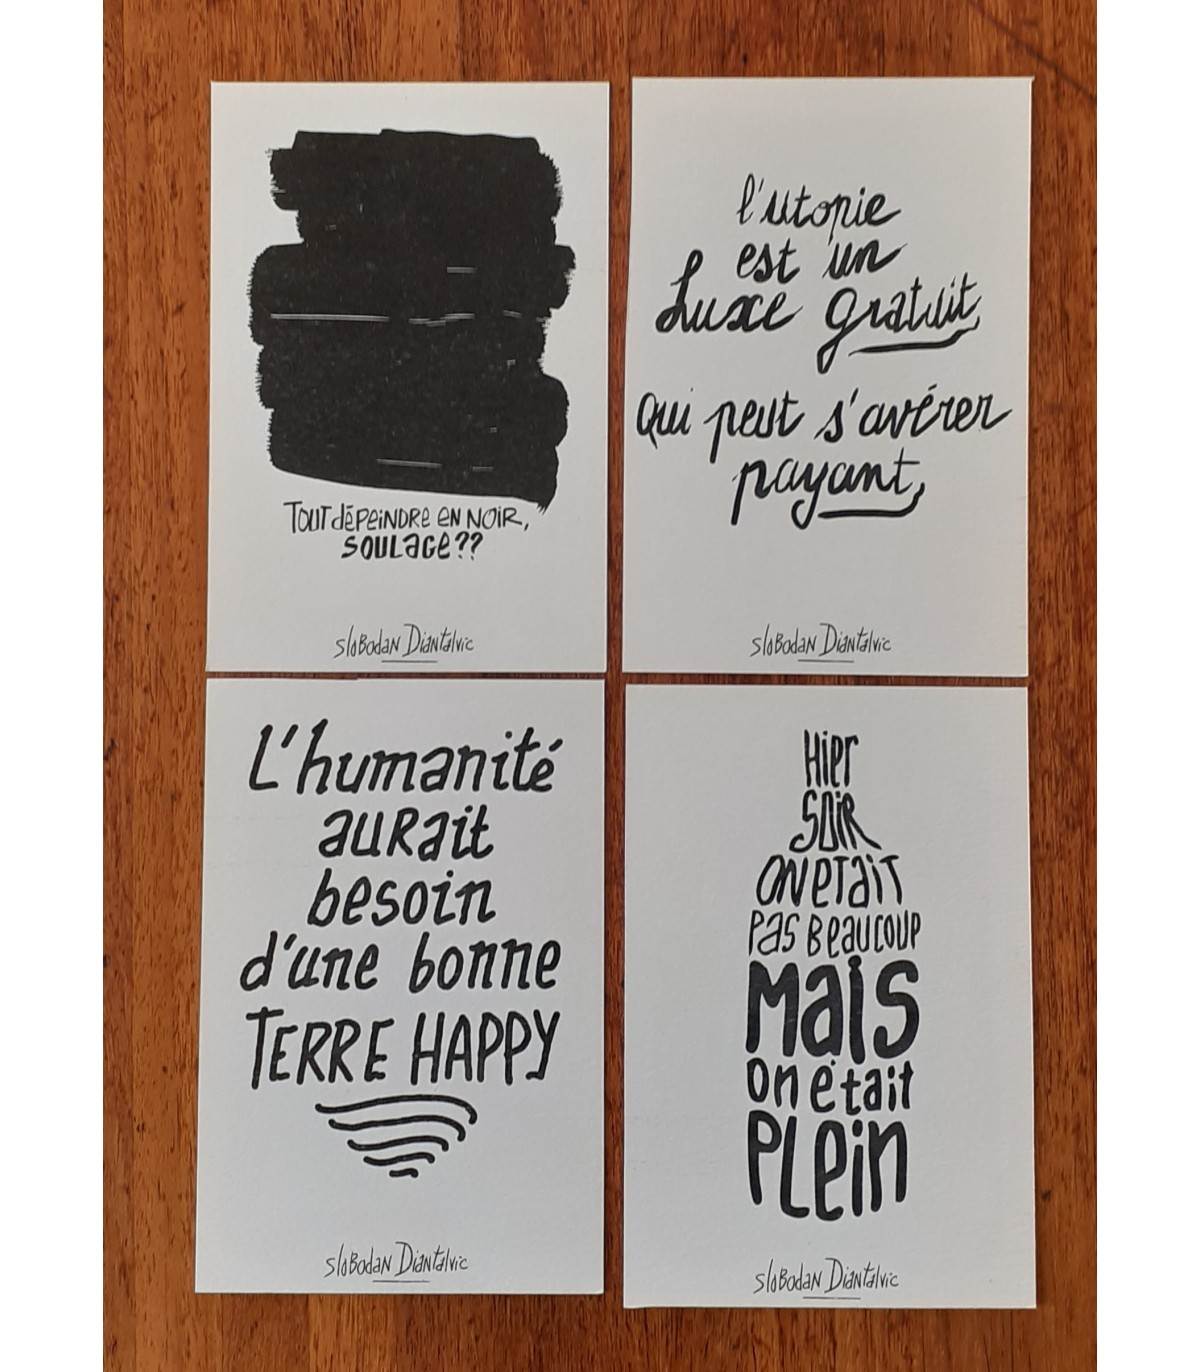 TOUT dépeindre en noir,
SOULAGE??
sloBodan Diantalvic
l'utopie
est un
Luxe gratuit
qui peut s'avérer
payant,
sloBodan Diantalvic
L'humanité
auRait
besoin
d'une bonne
TERRE HAPPY
sloBodan Diantalvic
Hier
SOIR
ON ETAIT
pas BEAUCOUP
Mais
on était
PLein
sloBodan Diantalvic